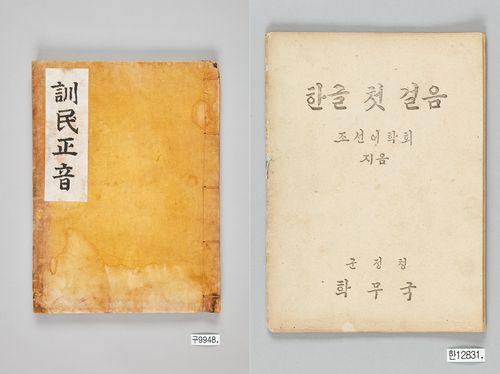 訓民正音
구9948.
한글 첫 걸음
조선어학회
지음
군정청
학무국
한12831.